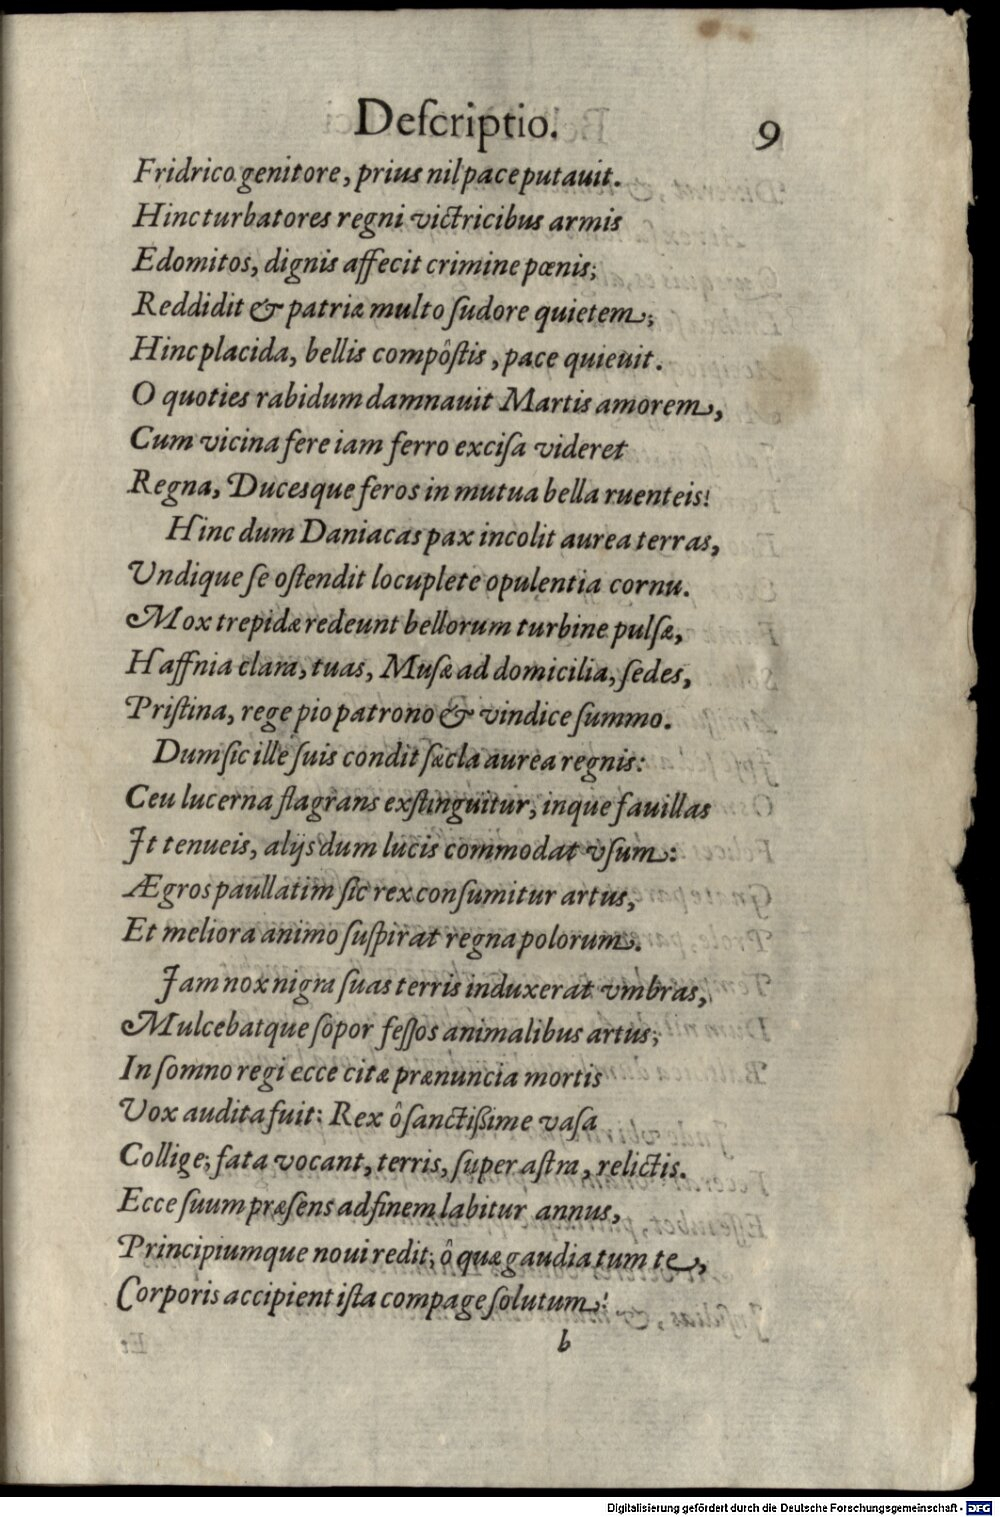 Deſcriptio. 9
Fridrico genitore, prius nil pace putauit.
Hinc turbatores regni victricibus armis
Edomitos, dignis affecit crimine pœnis;
Reddidit & patriæ multo ſudore quietem;
Hinc placida, bellis compôſtis, pace quieuit.
O quoties rabidum damnauit Martis amorem,
Cum vicina fere iam ferro exciſa videret
Regna, Ducesque feros in mutua bella ruenteis!
Hinc dum Daniacas pax incolit aurea terras,
Undique ſe oſtendit locuplete opulentia cornu.
Mox trepidæ redeunt bellorum turbine pulſæ,
Haffnia clara, tuas, Muſæ ad domicilia, ſedes,
Priſtina, rege pio patrono & vindice ſummo.
Dum ſic ille ſuis condit ſæcla aurea regnis:
Ceu lucerna flagrans exſtinguitur, inque fauillas
It tenueis, alijs dum lucis commodat vſum:
Ægros paullatim ſic rex conſumitur artus,
Et meliora animo ſuſpirat regna polorum.
Jam nox nigra ſuas terris induxerat vmbras,
Mulcebatque ſopor feſſos animalibus artus;
In ſomno regi ecce citæ prænuncia mortis
Vox audita fuit: Rex ô ſanctißime vaſa
Collige; fata vocant, terris, ſuper aſtra, relictis.
Ecce ſuum præſens ad finem labitur annus,
Principiumque noui redit; ô quæ gaudia tum te,
Corporis accipient iſta compage ſolutum!
b
Digitalisierung gefördert durch die Deutsche Forschungsgemeinschaft - DFG